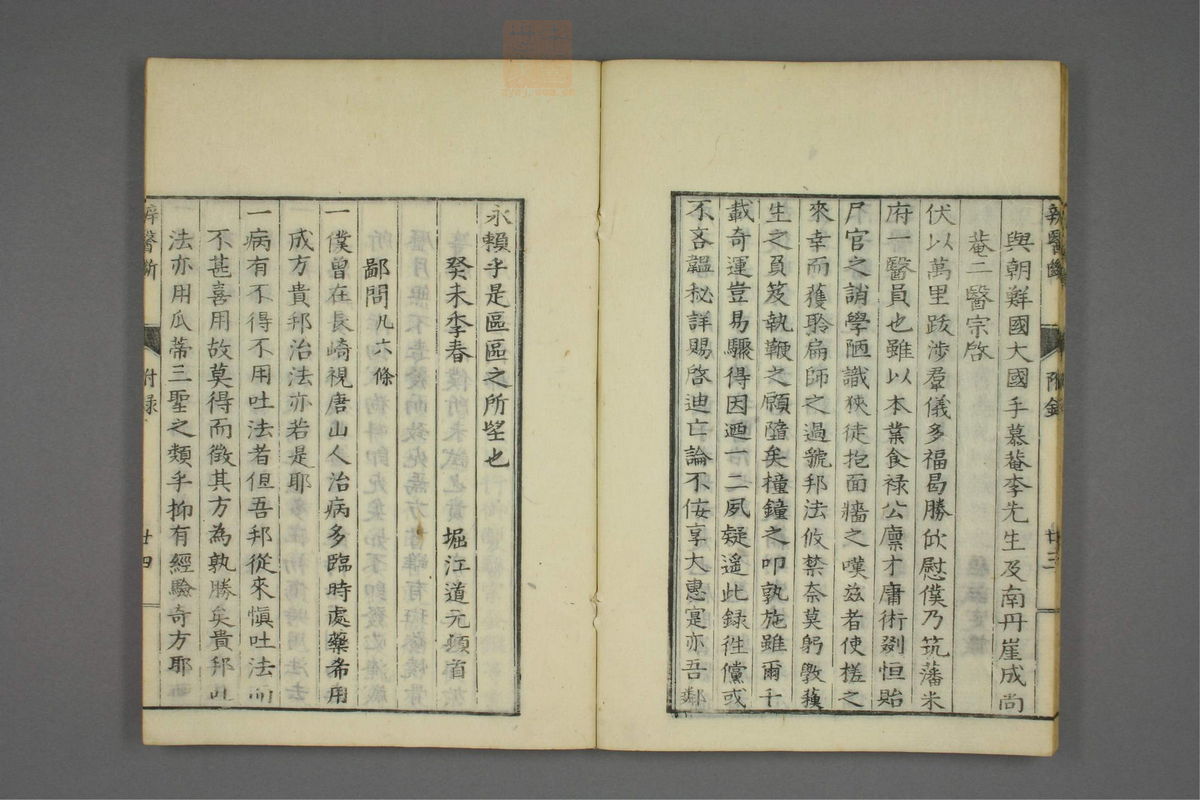 辨醫斷
附錄
廿三
與朝鮮國大國手慕菴李先生及南丹崖成尚
菴二醫宗啓
伏以萬里跋涉羣儀多福曷勝欣慰僕乃筑藩米
府一醫員也雖以本業食祿公廪才庸術劣恒貽
尸官之誚學陋識狹徒抱面牆之嘆茲者使槎之
來幸而獲聆扁師之過虢邦法攸禁奈莫躬斆蘐
生之負笈執鞭之願隨矣橦鐘之叩孰施雖爾千
載奇運豈易驟得因迺一二夙疑遙此録徃儻或
不吝韞秘詳賜啓迪亡論不佞享大惠寔亦吾鄰
永賴乎是區區之所望也
癸未季春 堀江道元頓首
鄙問凡六條
一僕曾在長崎視唐山人治病多臨時處藥希用
成方貴邦治法亦若是耶
一病有不得不用吐法者但吾邦從來愼吐法而
不甚喜用故莫得而徵其方為孰勝矣貴邦此
法亦用瓜蒂三聖之類乎抑有經驗奇方耶
辨醫斷
附録
廿四